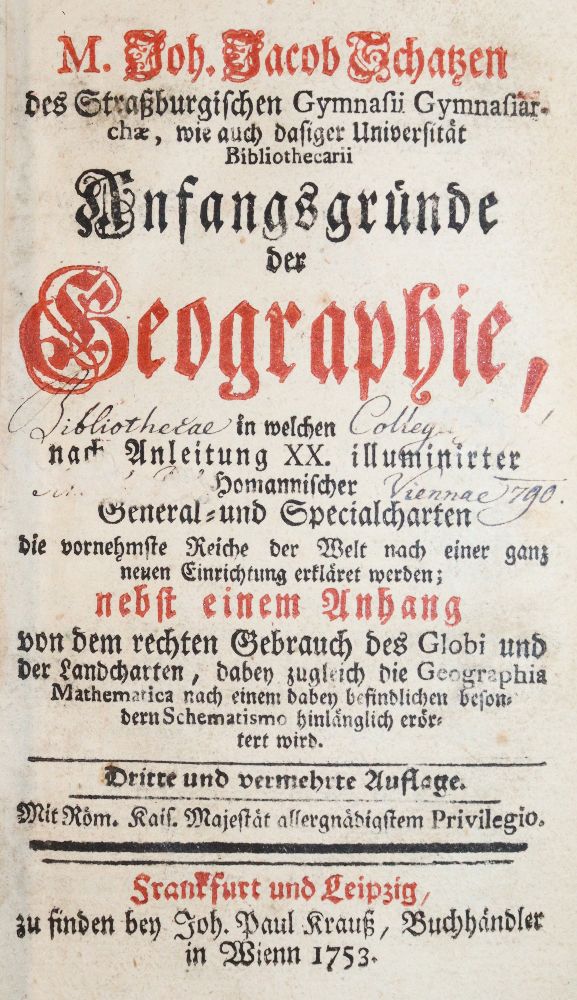 M. Joh. Jacob Schatzen
des Straßburgischen Gymnasii Gymnasiar-
chæ, wie auch dasiger Universität
Bibliothecarii
Anfangsgründe
der
Geographie,
Bibliothecae in welchen
nach Anleitung XX. illuminirter
Homannischer Viennae 1790.
General- und Specialcharten
die vornehmste Reiche der Welt nach einer ganz
neuen Einrichtung erkläret werden;
nebst einem Anhang
von dem rechten Gebrauch des Globi und
der Landcharten, dabey zugleich die Geographia
Mathematica nach einem dabey befindlichen beson-
dern Schematismo hinlänglich erör-
tert wird.
Dritte und vermehrte Auflage.
Mit Röm. Kais. Majestät allergnädigstem Privilegio.
Frankfurt und Leipzig,
zu finden bey Joh. Paul Krauß, Buchhändler
in Wienn 1753.